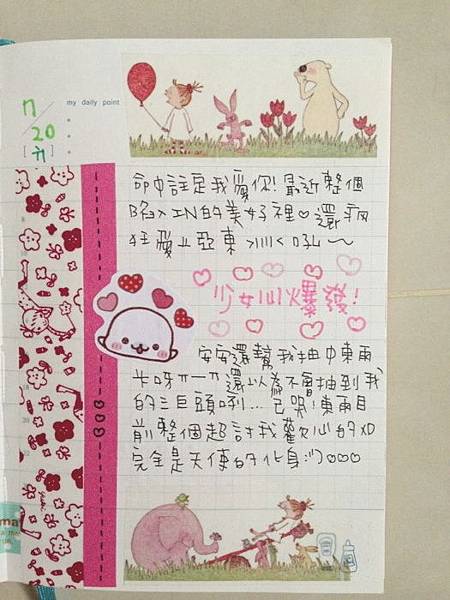 my daily point
7/20
命中註定我愛你!最近整個
陷入IN的美好裡♡還瘋
狂愛上亞東 >///< 吼~
少女心爆發!
安安還幫我抽中東雨
卡呀ㅠ一ㅠ還以為不會抽到我
的三巨頭咧...已哭!東雨目
前整個超討我歡心的XD
完全是天使的化身:)♡♡♡